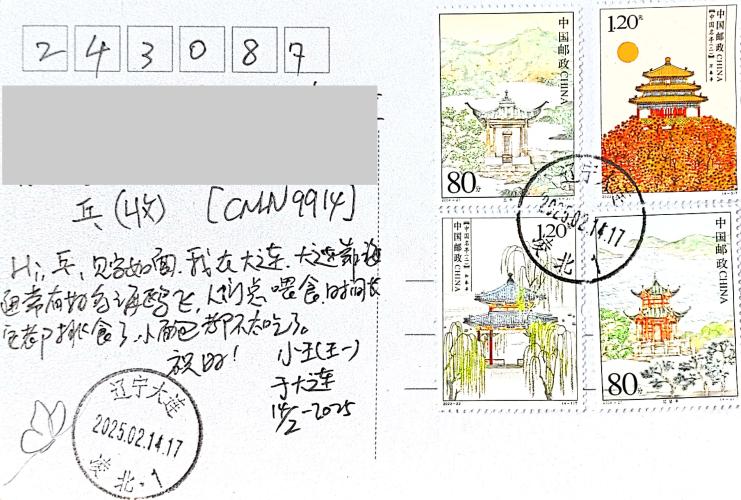 243087
兵(收) [CMN9914]
Hi, 兵, 见字如面. 我在大连. 大连靠海
通常有好多海鸥飞, 人们总喂食, 时间长
它都挑食了, 小面包都不太吃了。
祝好!
小王(王一)
于大连
14/2-2025
辽宁大连
2025.02.14.17
凌北·1
80分
中国邮政 CHINA
1.20元
中国邮政 CHINA
【中国名亭(二)】
1.20元
中国邮政 CHINA
【中国名亭(二)】
80分
中国邮政 CHINA
辽宁大连
2025.02.14.17
凌北·1